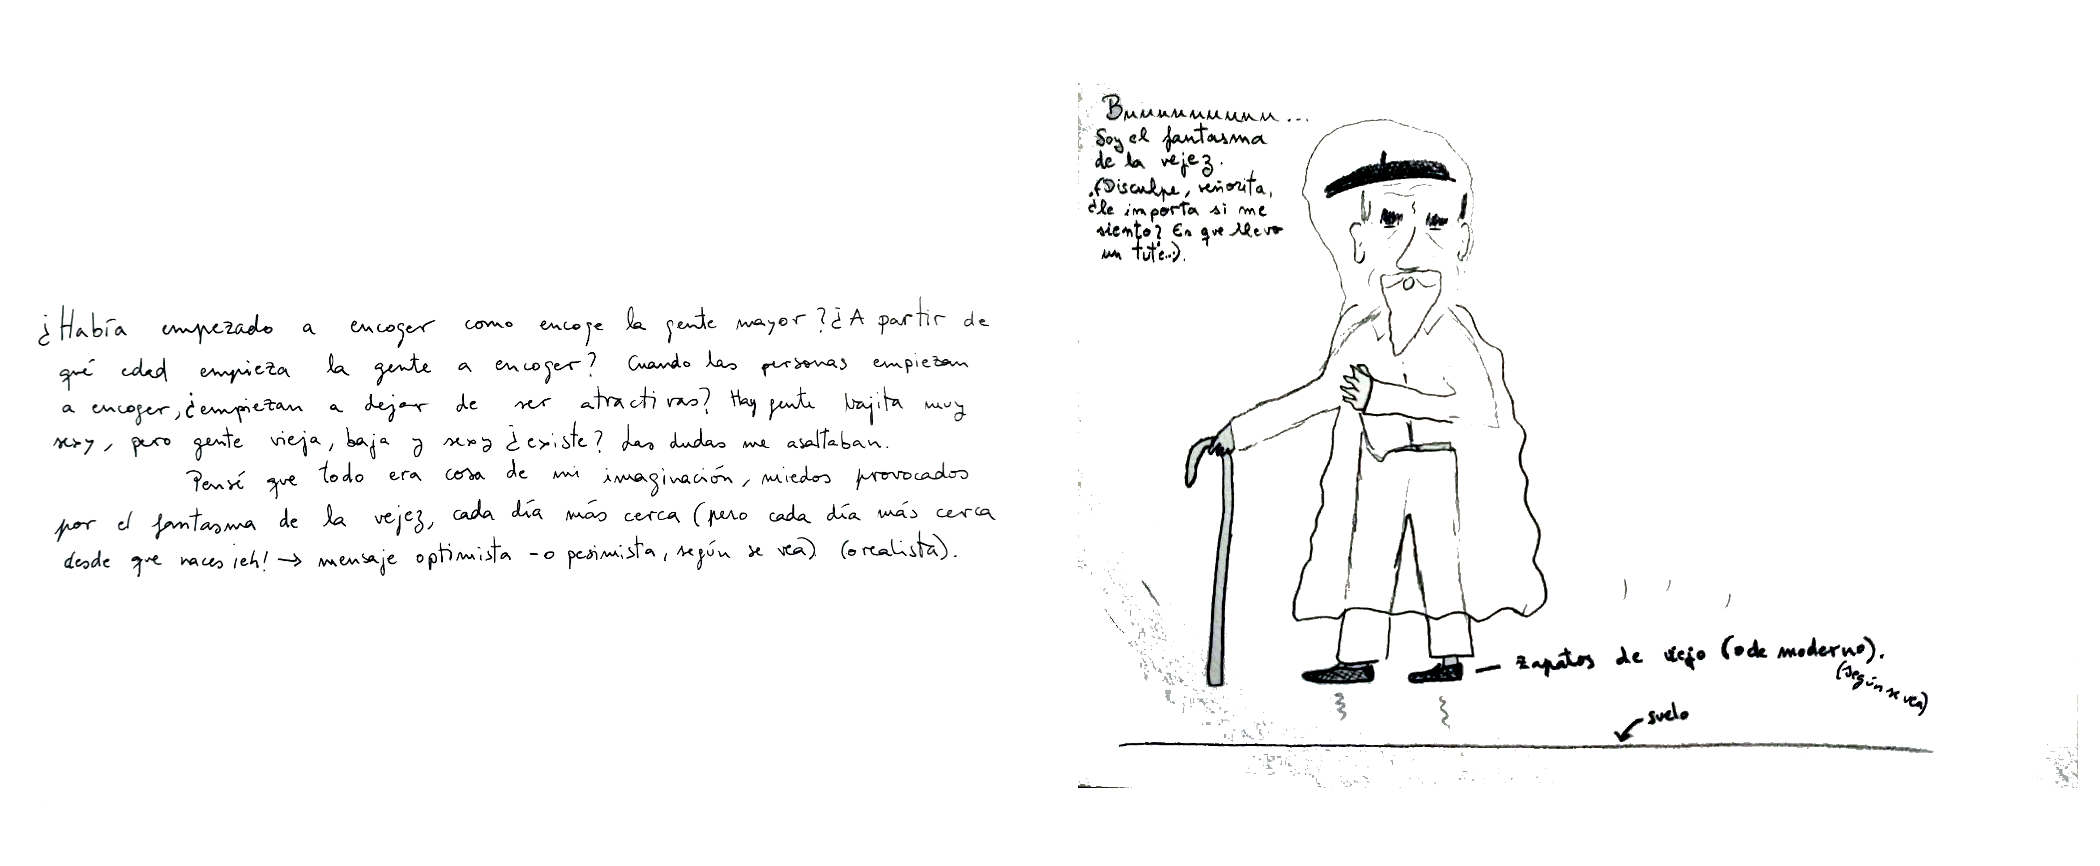 ¿Había empezado a encoger como encoge la gente mayor? ¿A partir de
qué edad empieza la gente a encoger? Cuando las personas empiezan
a encoger, ¿empiezan a dejar de ser atractivas? Hay gente bajita muy
sexy, pero gente vieja, baja y sexy ¿existe? Las dudas me asaltaban.
Pensé que todo era cosa de mi imaginación, miedos provocados
por el fantasma de la vejez, cada día más cerca (pero cada día más cerca
desde que naces ¡eh! → mensaje optimista -o pesimista, según se vea) (o realista).
Buuuuuuuuuu...
Soy el fantasma
de la vejez.
(Disculpe, señorita,
¿le importa si me
siento? Es que llevo
un tute...).
zapatos de viejo (o de moderno).
(según se vea)
suelo